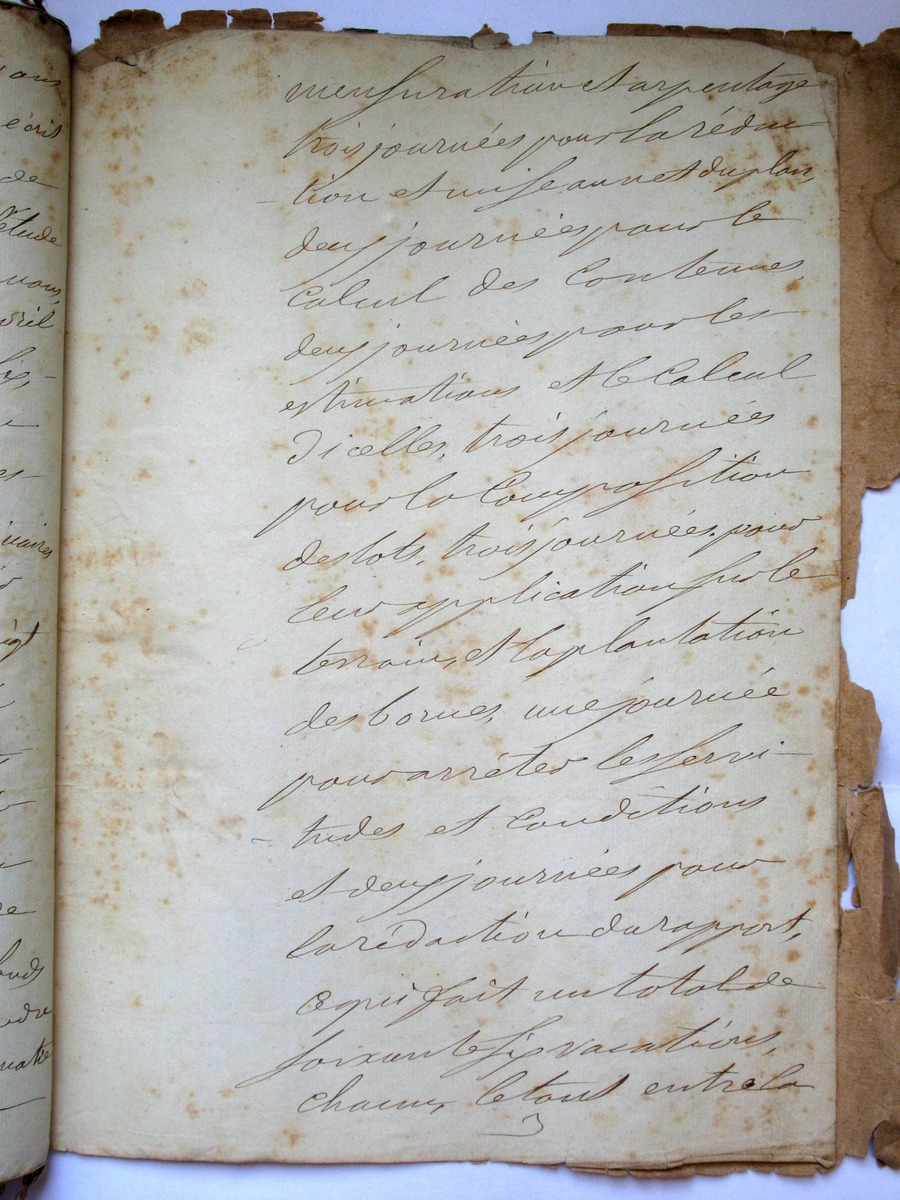 ans
écrit
de
l'étude
vril
es-
de
mensuration et arpentage
trois journées pour la réduc
- tion et mise au net du plan,
deux journées pour le
Calcul des Contenues,
deux journées pour les
estimations et le Calcul
d'icelles, trois journées
pour la Composition
des lots, trois journées pour
leur application sur le
terrain, et la plantation
des bornes, une journée
pour arrêter les servi-
- tudes et Conditions
et deux journées pour
la rédaction du rapport,
Ce qui fait un total de
soixante six vacations,
chacun, le tout entre la